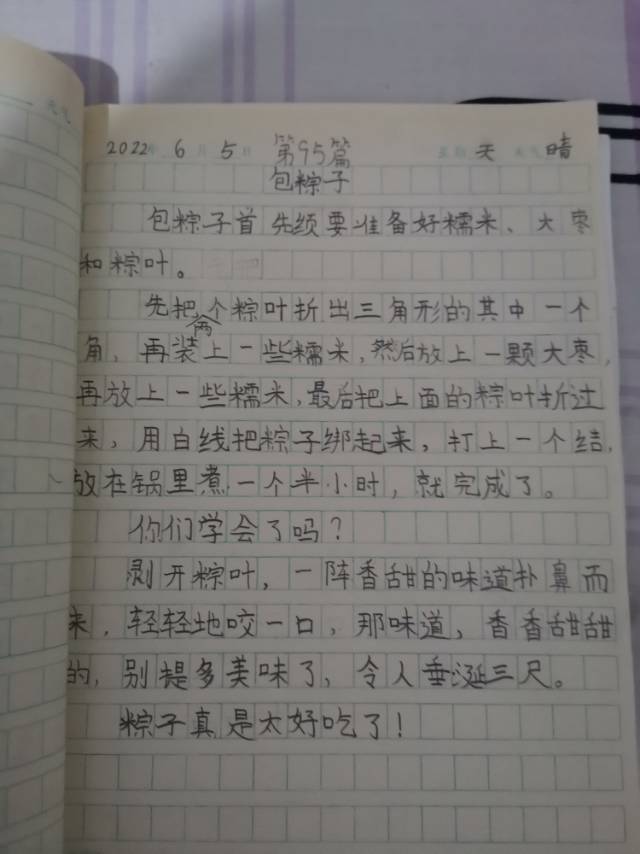 天气
2022年 6月 5日 第95篇 星期 天 天气 晴
包粽子
包粽子首先须要准备好糯米、大枣
和粽叶。
先把两个粽叶折出三角形的其中一个
角，再装上一些糯米，然后放上一颗大枣，
再放上一些糯米，最后把上面的粽叶折过
来，用白线把粽子绑起来，打上一个结，
放在锅里煮一个半小时，就完成了。
你们学会了吗？
剥开粽叶，一阵香甜的味道扑鼻而
来，轻轻地咬一口，那味道，香香甜甜
的，别提多美味了，令人垂涎三尺。
粽子真是太好吃了！